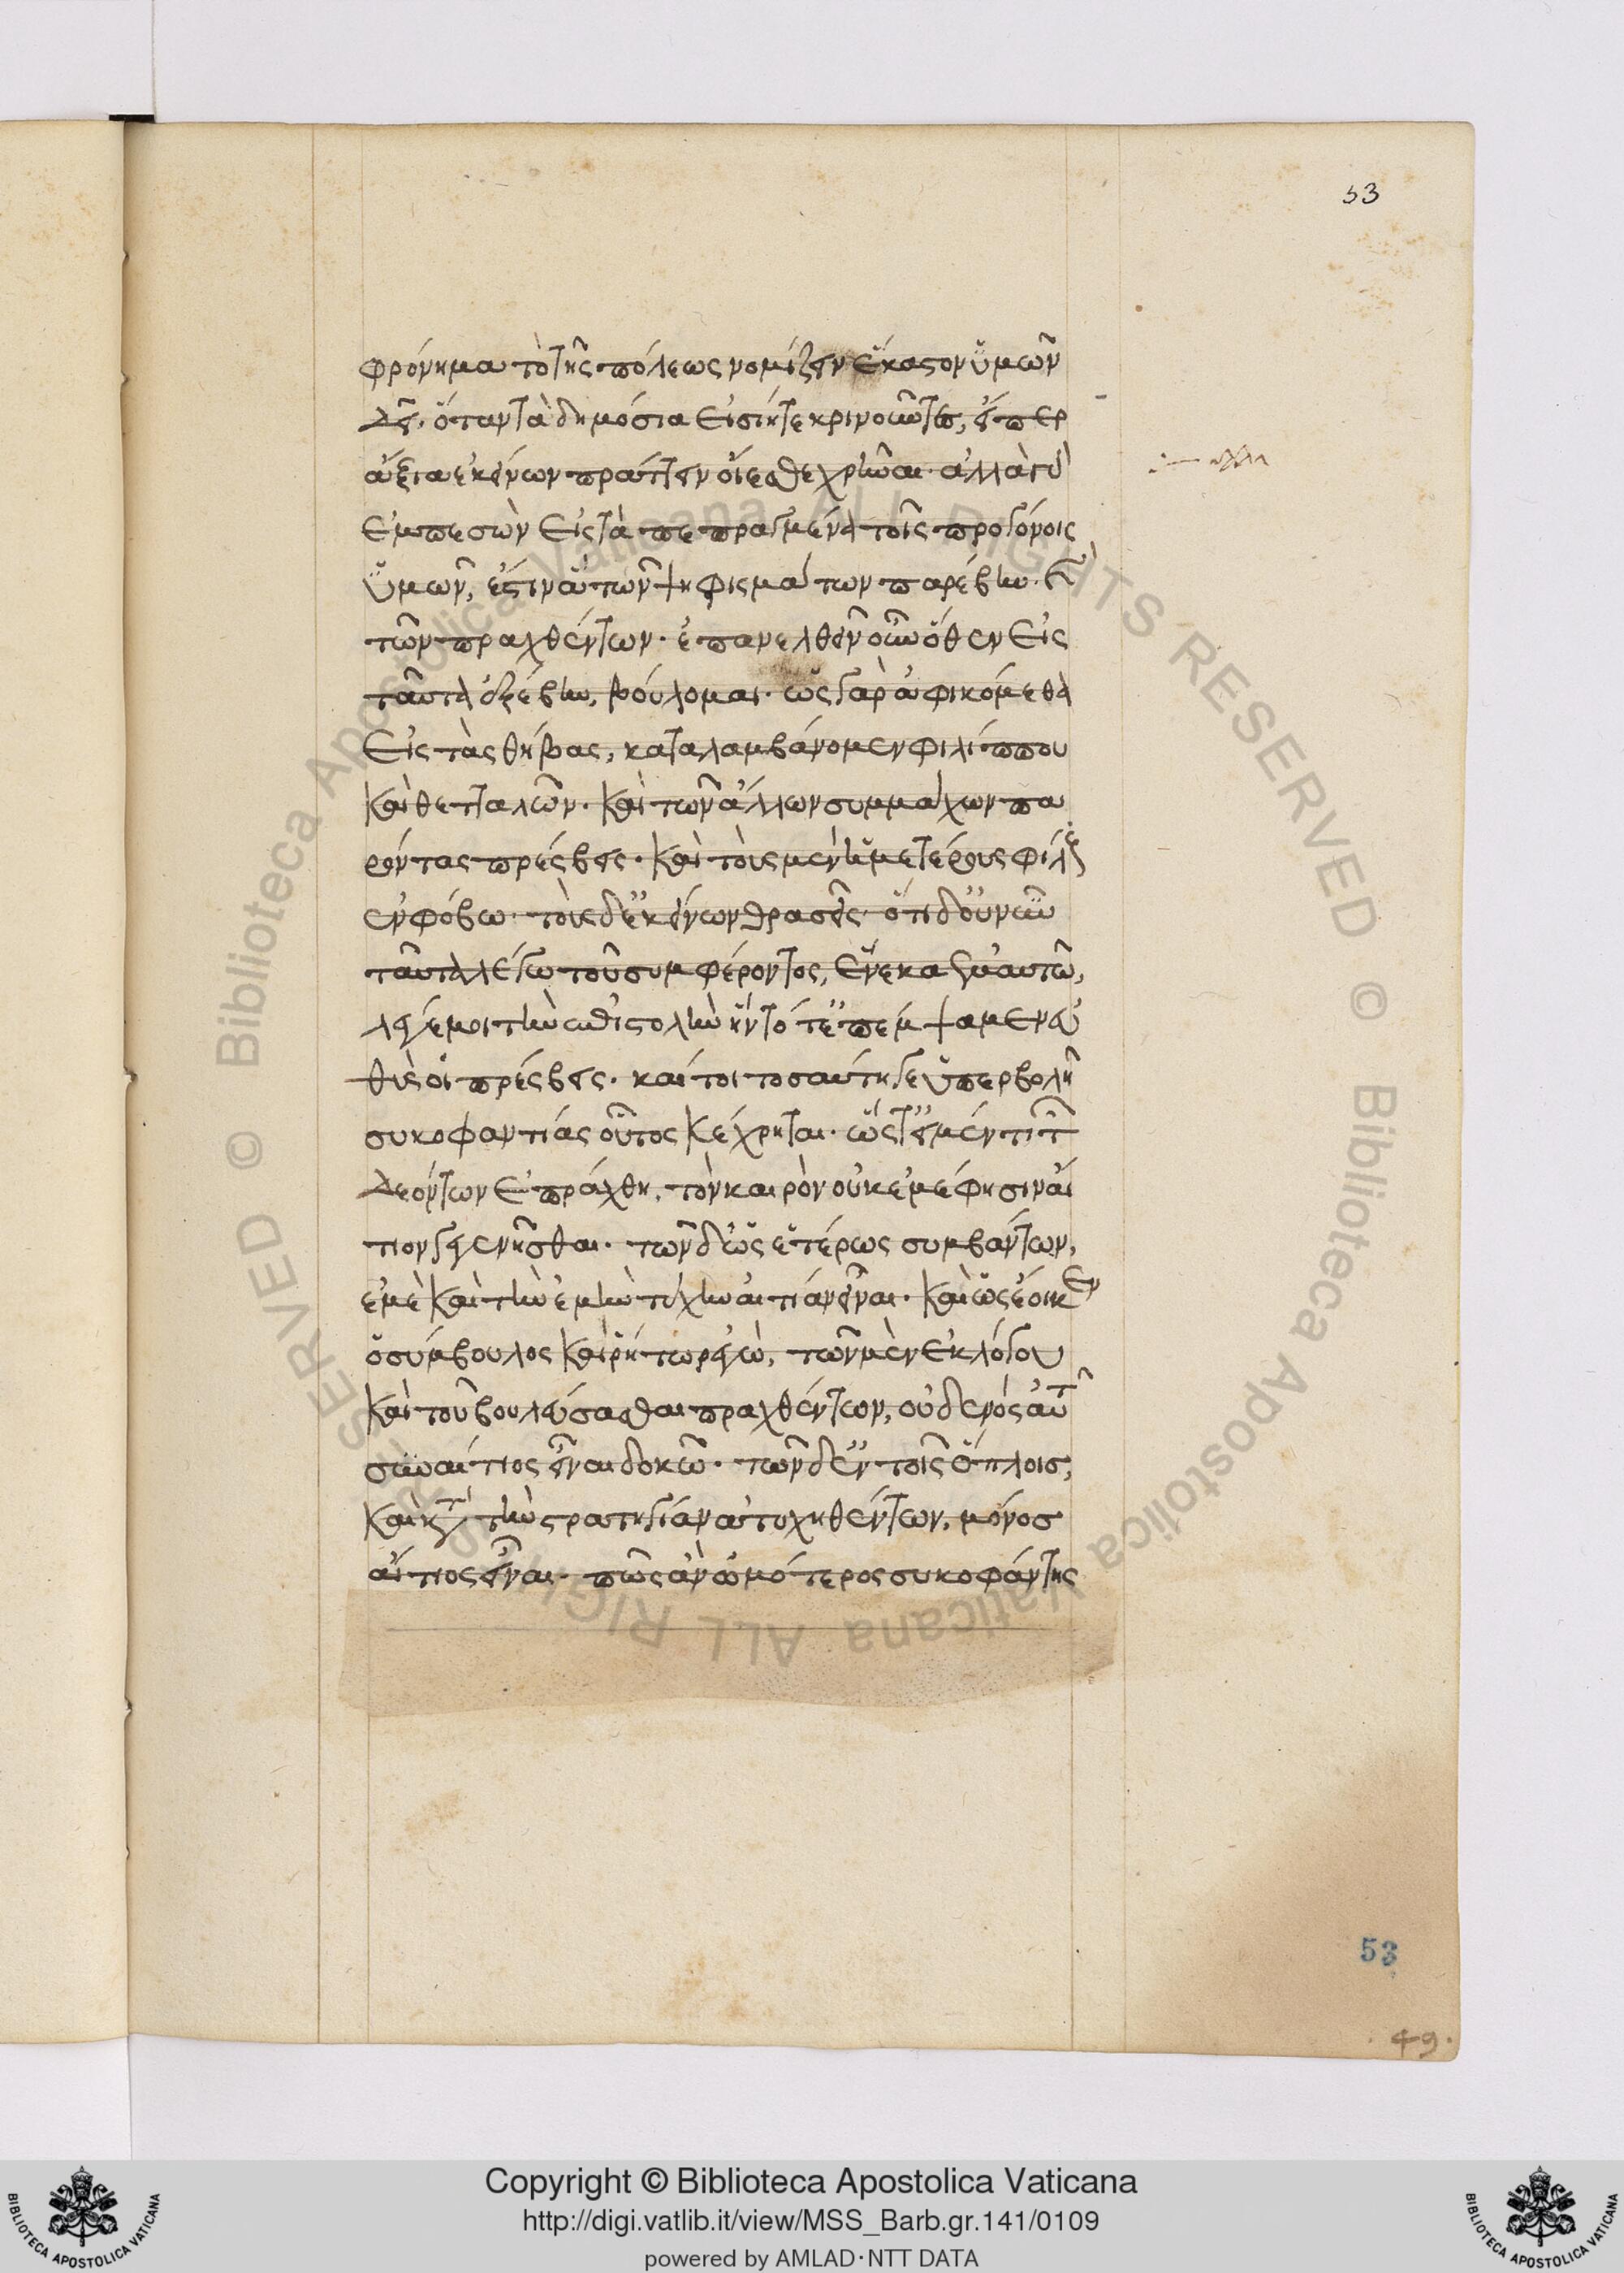 53
φρόνημα τὸ τῆς πόλεως νομίζειν ἕκαστον ὑμῶν
δεῖ. ὅταν τὰ δημόσια εἰσίητε κρινοῦντες, εἴπερ
ἄξια ἐκείνων πράττειν οἴεσθε χρῆναι. ἀλλὰ γὰρ
ἀλλὰ
ἐμπεσὼν εἰς τὰ πεπραγμένα τοῖς προγόνοις
ὑμῶν, ἔστιν ἃ τῶν ψηφισμάτων παρέβην καὶ
τῶν πραχθέντων. ἐπανελθεῖν οὖν ὅθεν εἰς
ταῦτα ἐξέβην, βούλομαι. ὡς γὰρ ἀφικόμεθα
εἰς τὰς θήβας, καταλαμβάνομεν φιλίππου
καὶ θετταλῶν. καὶ τῶν ἄλλων συμμάχων πα
ρόντας πρέσβεις. καὶ τοὺς μὲν ἡμετέρους φίλους
ἐν φόβω. τοὺς δ' ἐκείνων θρασεῖς. ὅτι δ' οὐ νῦν
ταῦτα λέγω τοῦ συμφέροντος, ἕνεκα ἐμαυτῶ,
λέγε μοι τὴν ἐπιστολὴν ἣν τότ' ἐπέμψαμεν εὐ
θὺς οἱ πρέσβεις. καί τοι τοσαύτη γε ὑπερβολῆ
συκοφαντίας οὗτος κέχρηται. ὥστ' εἰ μέν τι τῶν
δεόντων ἐπράχθη, τὸν καιρὸν οὐκ ἐμέ φησιν αἴ
τιον γεγενῆσθαι. τῶν δ' ὡς ἑτέρως συμβάντων,
ἐμὲ καὶ τὴν ἐμὴν τύχην αἰτίαν εἶναι. καὶ ὡς ἔοικεν
ὁ σύμβουλος καὶ ῥήτωρ ἐγὼ, τῶν μὲν ἐκ λόγου
καὶ τοῦ βουλεύσασθαι πραχθέντων, οὐδενὸς αὐτῶ
συναίτιος εἶναι δοκῶ. τῶν δ' ἐν τοῖς ὅπλοισ,
καὶ κατὰ τὴν στρατηγίαν ἀτυχηθέντων, μόνοσ
αἴτιος εἶναι. πῶς ἂν ὠμότερος συκοφάντης
53
49.
Copyright © Biblioteca Apostolica Vaticana
http://digi.vatlib.it/view/MSS_Barb.gr.141/0109
powered by AMLAD·NTT DATA
BIBLIOTECA APOSTOLICA VATICANA
BIBLIOTECA APOSTOLICA VATICANA
© Biblioteca Apostolica Vaticana ALL RIGHTS RESERVED © Biblioteca Apostolica Vaticana ALL RIGHTS RESERVED